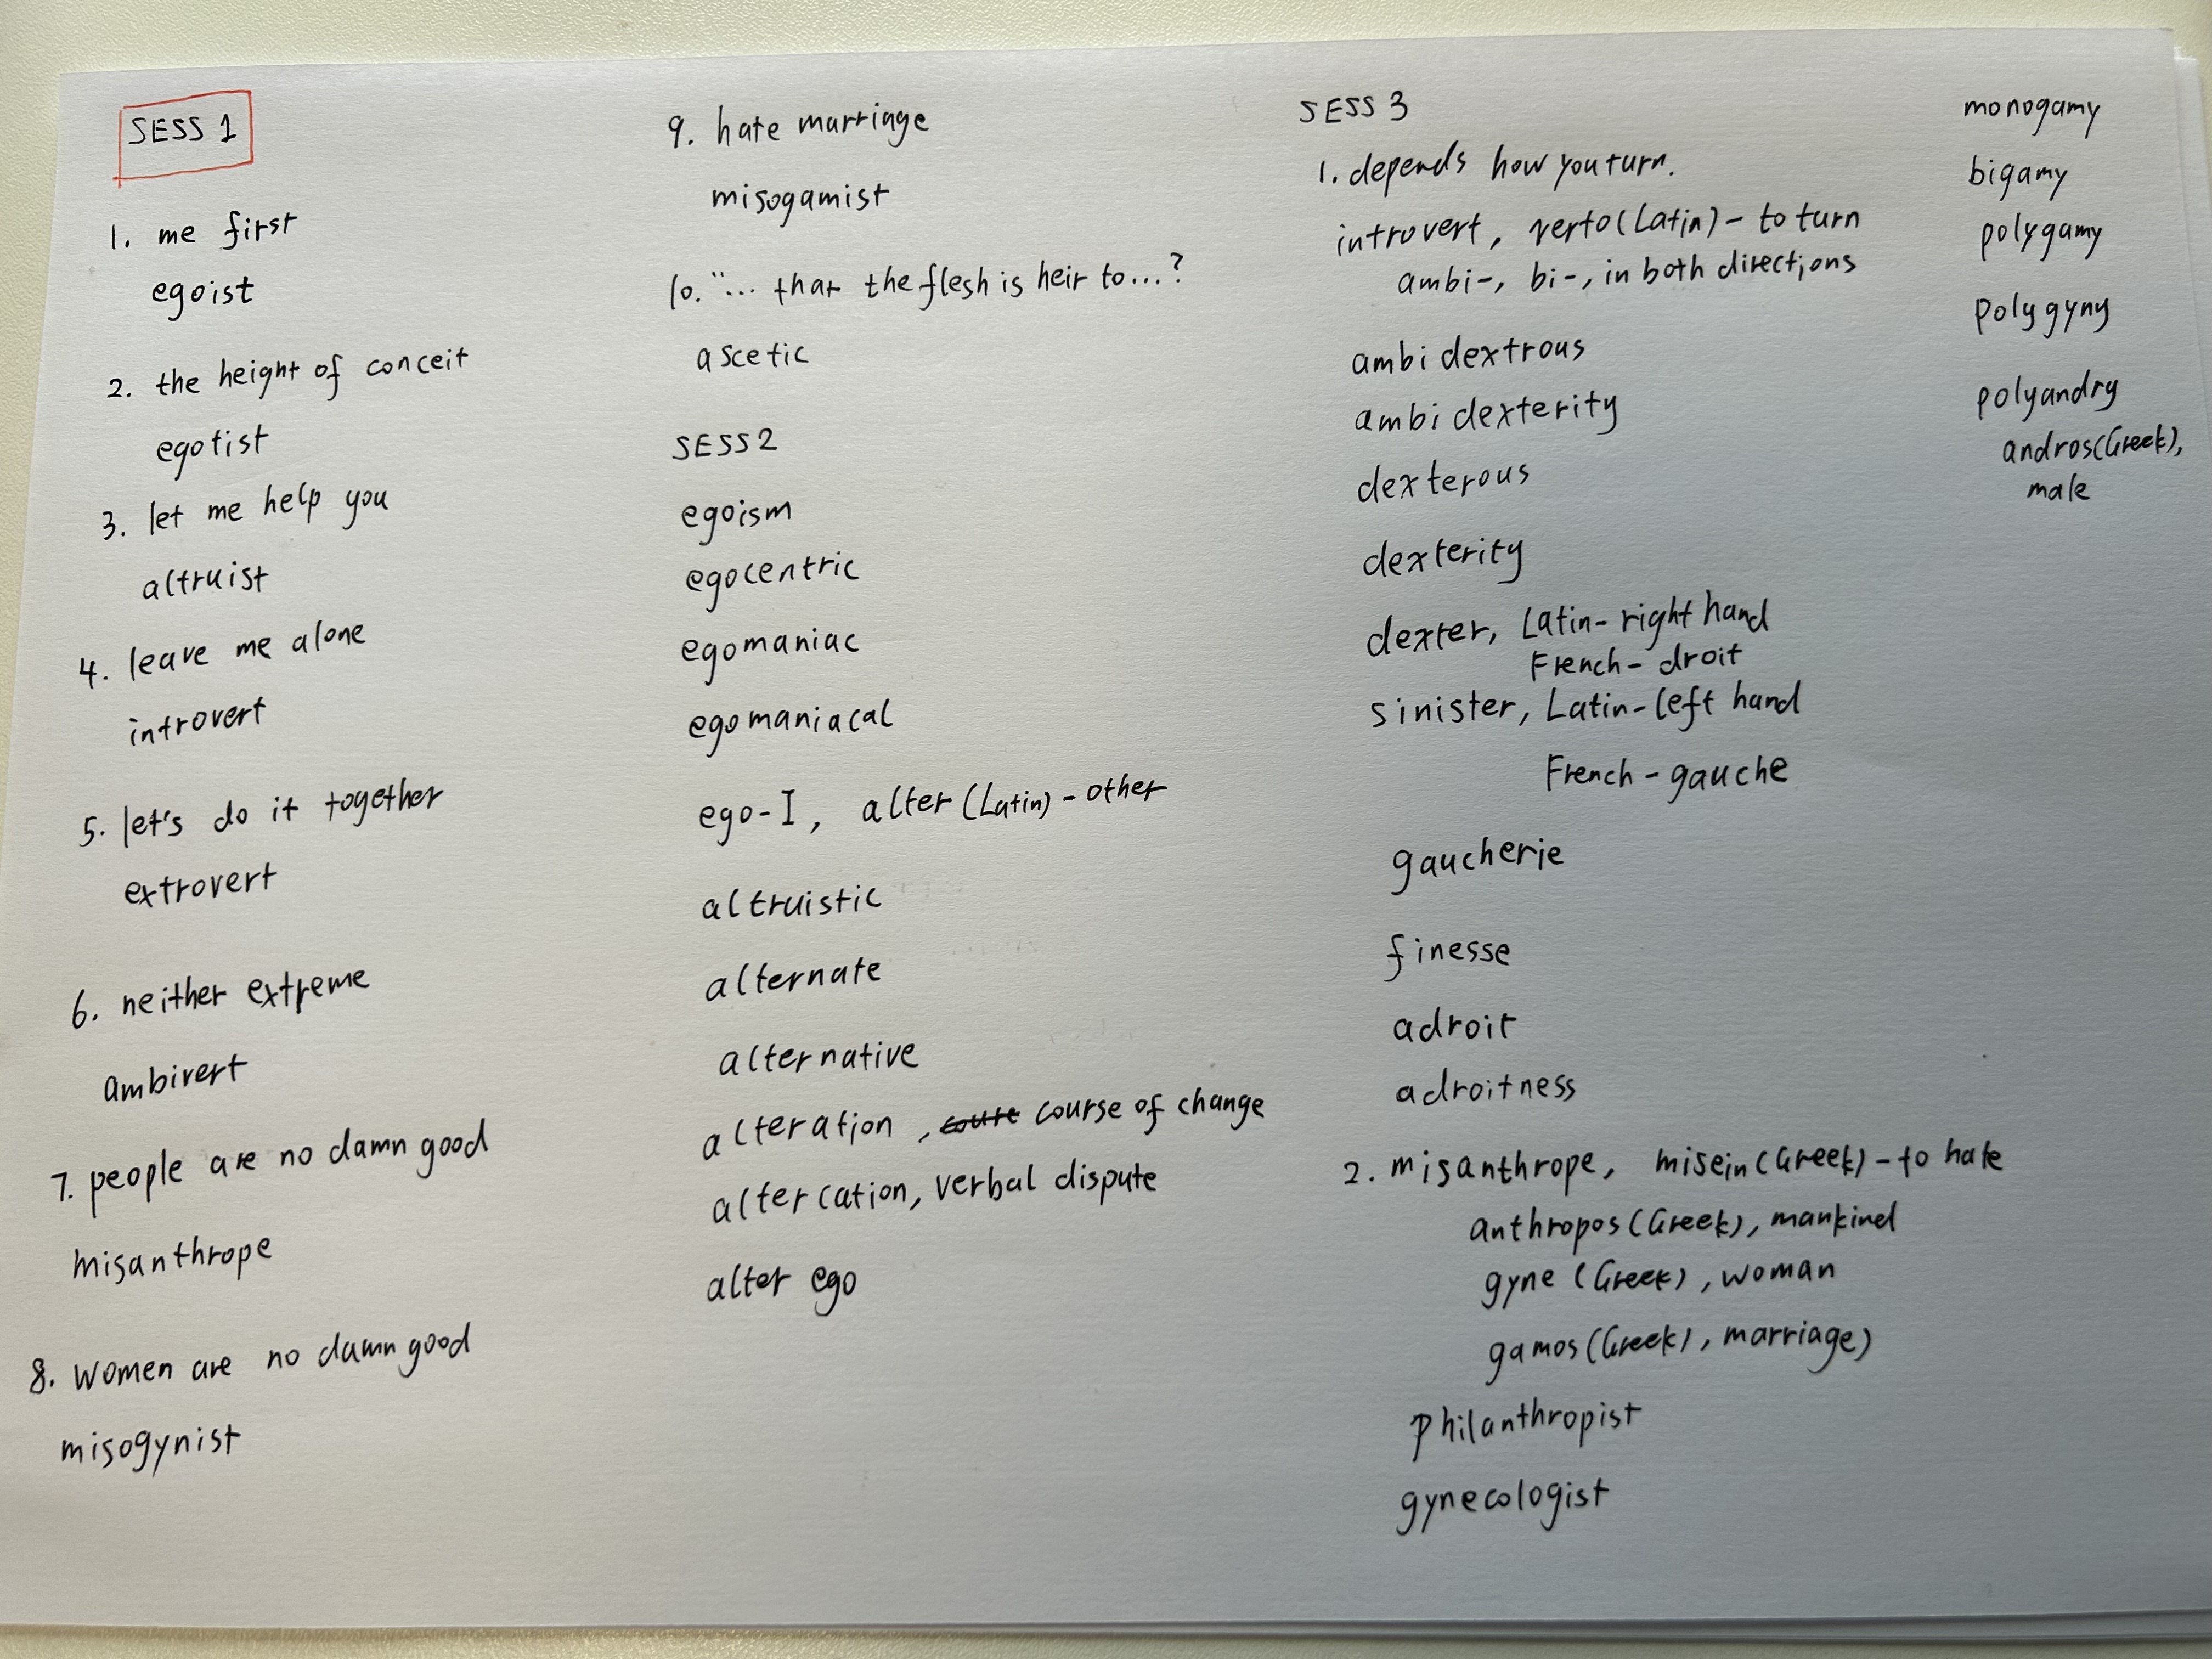 SESS 1
1. me first
egoist
2. the height of conceit
egotist
3. let me help you
altruist
4. leave me alone
introvert
5. let's do it together
extrovert
6. neither extreme
ambivert
7. people are no damn good
misanthrope
8. women are no damn good
misogynist
9. hate marringe
misogamist
10. "... that the flesh is heir to...?
ascetic
SESS 2
egoism
egocentric
egomaniac
egomaniacal
ego-I, alter (Latin) - other
altruistic
alternate
alternative
alteration, course of change
altercation, verbal dispute
alter ego
SESS 3
1. depends how you turn.
introvert, verto (Latin) - to turn
ambi-, bi-, in both directions
ambidextrous
ambidexterity
dexterous
dexterity
dexter, Latin- right hand
French- droit
sinister, Latin-left hand
French - gauche
gaucherie
finesse
adroit
adroitness
2. misanthrope, misein (Greek) - to hate
anthropos (Greek), mankind
gyne (Greek), woman
gamos (Greek), marriage)
philanthropist
gynecologist
monogamy
bigamy
polygamy
polygyny
polyandry
andros (Greek),
male